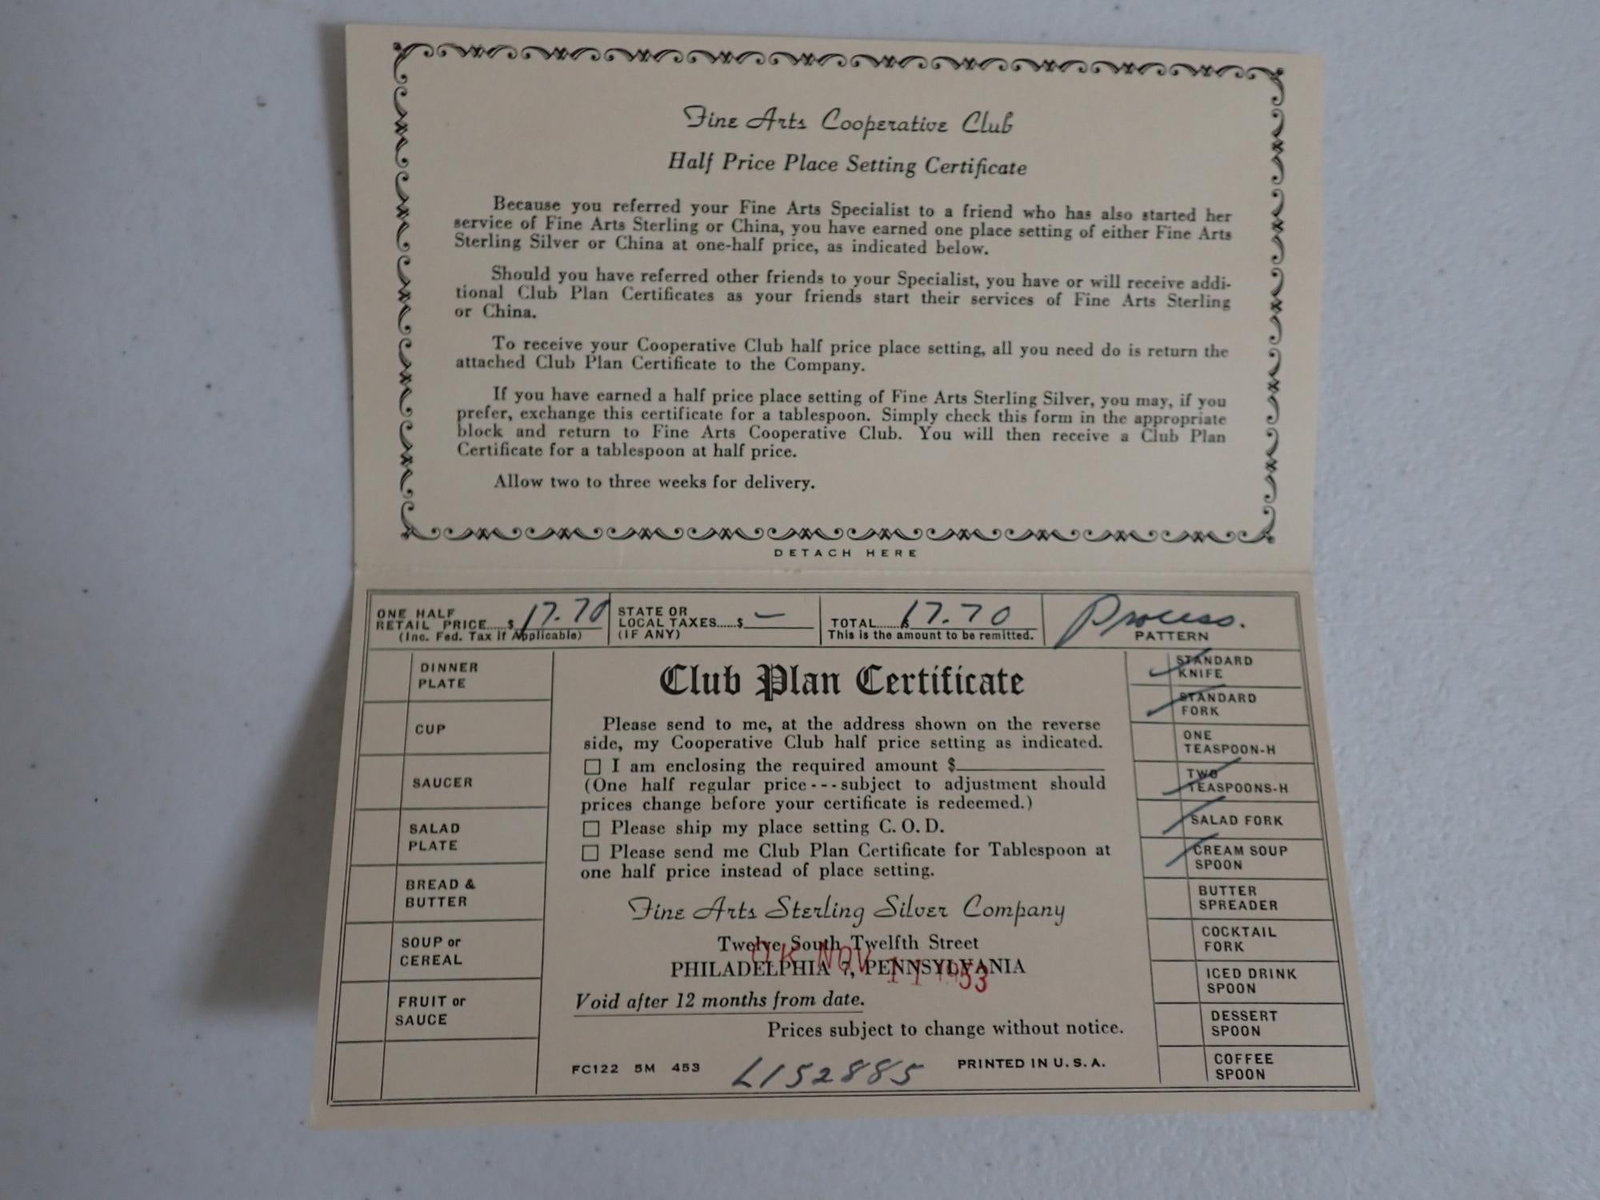 Fine Arts Cooperative Club
Half Price Place Setting Certificate
Because you referred your Fine Arts Specialist to a friend who has also started her
service of Fine Arts Sterling or China, you have earned one place setting of either Fine Arts
Sterling Silver or China at one-half price, as indicated below.
Should you have referred other friends to your Specialist, you have or will receive addi-
tional Club Plan Certificates as your friends start their services of Fine Arts Sterling
or China.
To receive your Cooperative Club half price place setting, all you need do is return the
attached Club Plan Certificate to the Company.
If you have earned a half price place setting of Fine Arts Sterling Silver, you may, if you
prefer, exchange this certificate for a tablespoon. Simply check this form in the appropriate
block and return to Fine Arts Cooperative Club. You will then receive a Club Plan
Certificate for a tablespoon at half price.
Allow two to three weeks for delivery.
DETACH HERE
ONE HALF
RETAIL PRICE.....$ 17.70
(Inc. Fed. Tax if Applicable)
STATE OR
LOCAL TAXES.....$ —
(IF ANY)
TOTAL......$ 17.70
This is the amount to be remitted.
Process.
PATTERN
DINNER
PLATE
CUP
SAUCER
SALAD
PLATE
BREAD &
BUTTER
SOUP or
CEREAL
FRUIT or
SAUCE
Club Plan Certificate
Please send to me, at the address shown on the reverse
side, my Cooperative Club half price setting as indicated.
I am enclosing the required amount $
(One half regular price---subject to adjustment should
prices change before your certificate is redeemed.)
Please ship my place setting C. O. D.
Please send me Club Plan Certificate for Tablespoon at
one half price instead of place setting.
Fine Arts Sterling Silver Company
Twelve South Twelfth Street
PHILADELPHIA 7, PENNSYLVANIA
NOV 1953
Void after 12 months from date.
Prices subject to change without notice.
FC122 5M 453
L152885
PRINTED IN U. S. A.
STANDARD
KNIFE
STANDARD
FORK
ONE
TEASPOON-H
TWO
TEASPOONS-H
SALAD FORK
CREAM SOUP
SPOON
BUTTER
SPREADER
COCKTAIL
FORK
ICED DRINK
SPOON
DESSERT
SPOON
COFFEE
SPOON